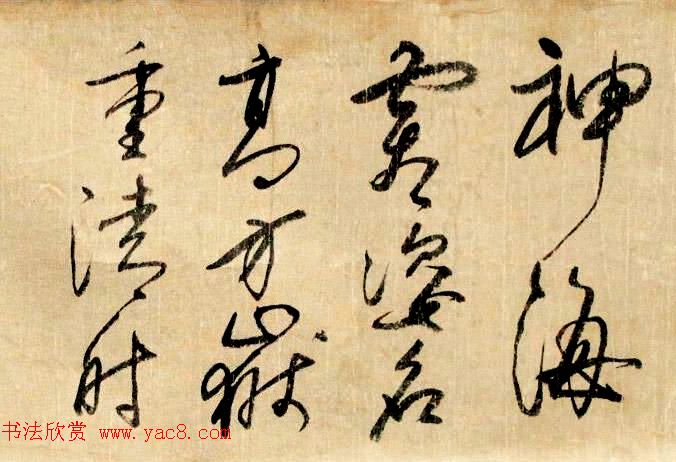 神海
霜姿名
高方嶽
重清时
书法欣赏 www.yac8.com